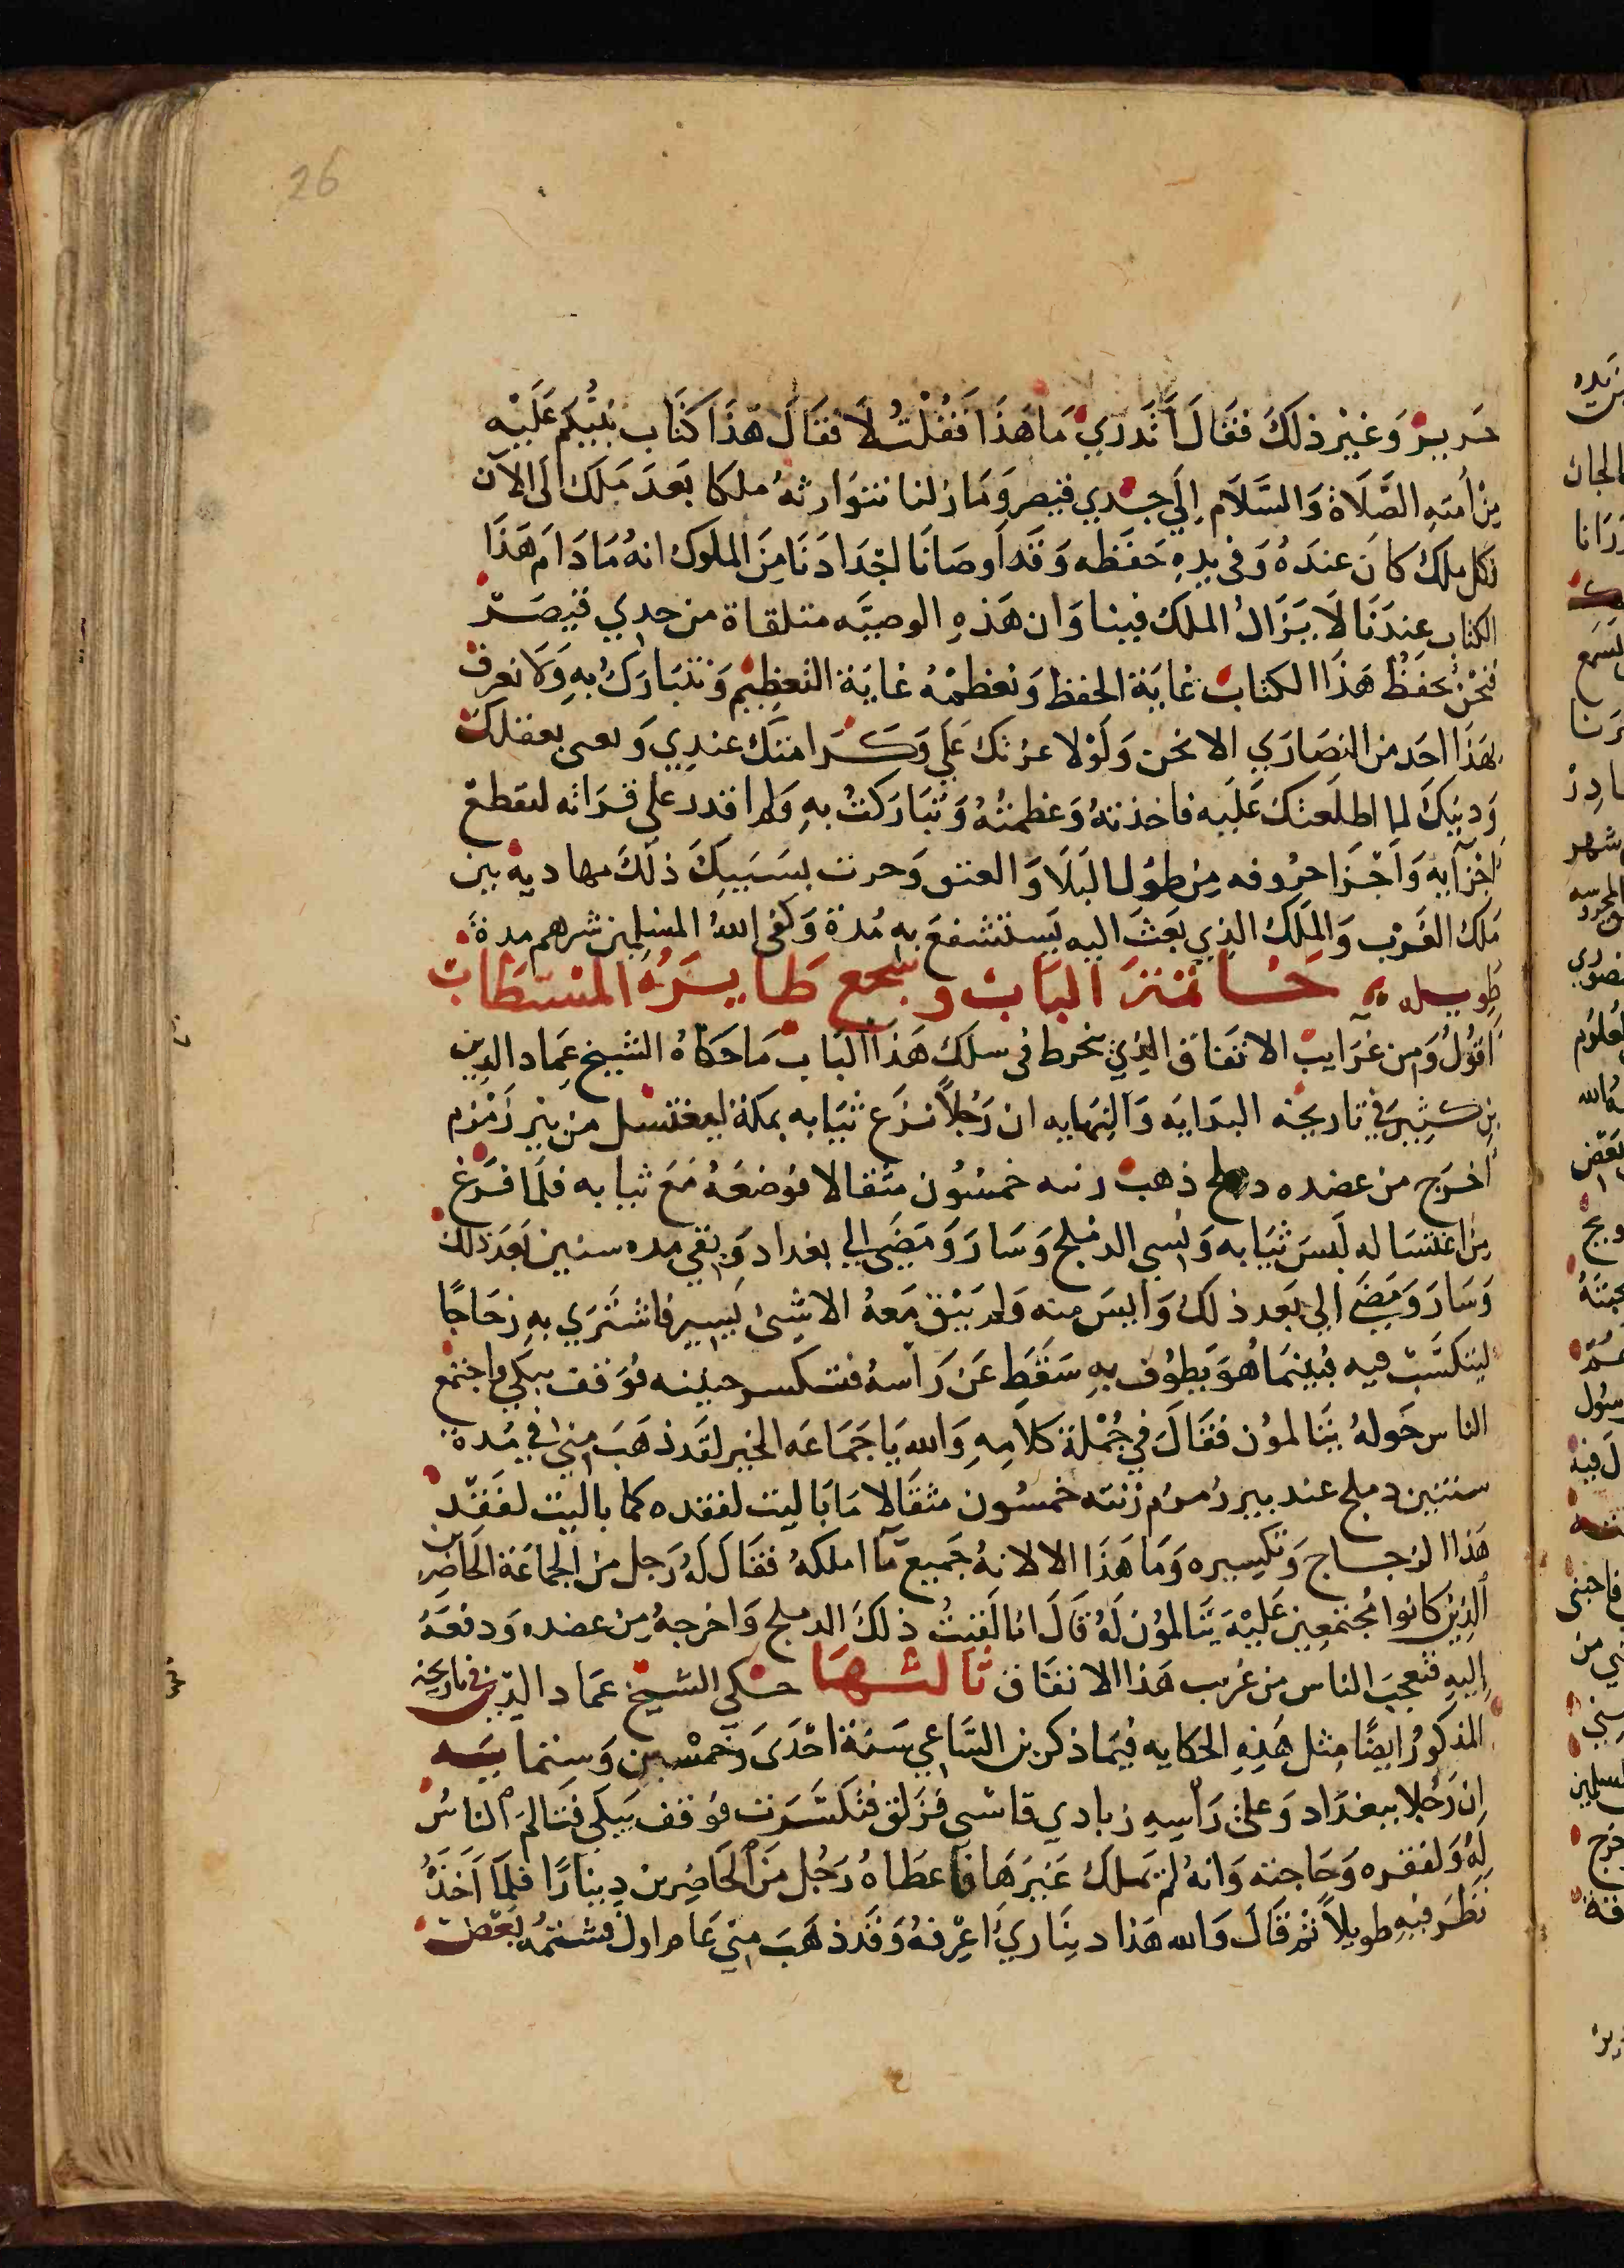 26
حرير وغير ذلك فقال أتدري ما هذا فقلت لا فقال هذا كتاب نبيكم عليه
من أمته الصلاة والسلام إلي جدي قيصر وما زلنا نتوارثه ملكا بعد ملك الى الآن
فكل ملك كان عنده وفى يده حفظه وقد اوصانا اجدادنا من الملوك انه ما دام هذا
الكتاب عندنا لا يزال الملك فينا وان هذه الوصيه متلقاة من جدي قيصر
فنحن نحفظ هذا الكتاب غاية الحفظ ونعظمه غاية التعظيم ونتبارك به ولا نعرف
بهذا احد من النصاري الا نحن ولولا عزتك علي وكرامتك عندي و بعقلك
ودينك لما اطلعتك عليه فاخذته وعظمته وتباركت به ولم اقدر على قراته لتقطع
اجزايه واجزا حروفه من طول البلا والعتق وحرت بسببيك ذلك مهاديه بين
ملك الغرب والملك الذي بعث اليه يستشفع به مدة وكفى الله المسلمين شرهم مدة
طويله خاتمة الباب وسجع طايره المستطاب
اقول ومن غرايب الاتفاق الذي نخرط فى سلك هذا الباب ما حكاه الشيخ عماد الدين
بن كثير في تاريخه البدايه والنهايه ان رجلا نزع ثيابه بمكة ليغتسل من بير زمزم
اخرج من عضده دملج ذهب زنته خمسون مثقالا فوضعه مع ثيابه فلما فرغ
من اغتساله لبس ثيابه ونسي الدملج وسار ومضي الي بغداد وبقي مده سنين بعد ذلك
وسار ومضي الي بعد ذلك وايس منه ولم يبق معه الا شئ يسير فاشتري به زجاجا
ليتكسب فيه فبينما هو يطوف به سقط عن راسه فتكسر حينه فوقف يبكي واجتمع
الناس حوله يتالمون فقال في جملة كلامه والله يا جماعه الخير لقد ذهب مني في مدة
سنتين دملج عند بير زمزم زنته خمسون مثقالا ما باليت لفقده كما باليت لفقد
هذا الزجاج وتكسيره وما هذا الا لانه جميع ما املكه فقال له رجل من الجماعة الحاضرين
الذين كانوا مجتمعين عليه يتالمون له قال انا لقيت ذلك الدملج واخرجه من عضده ودفعه
إليه فتعجب الناس من غريب هذا الاتفاق ثالثها حكي الشيخ عماد الدين في تاريخه
المذكور ايضا مثل هذه الحكايه فيما ذكر بن الساعي سنة احدى وخمسين وستمايه
ان رجلا ببغداد وعلى رأسه زبادي قاشى فزلق فتكسرت فوقف يبكي فتالم الناس
له ولفقره وحاجته وانه لم يملك غيرها فاعطاه رجل من الحاضرين دينارا فلما اخذه
نظر فيه طويلا ثم قال والله هذا ديناري اعرفه وقد ذهب مني عام اول فشتمه بعض